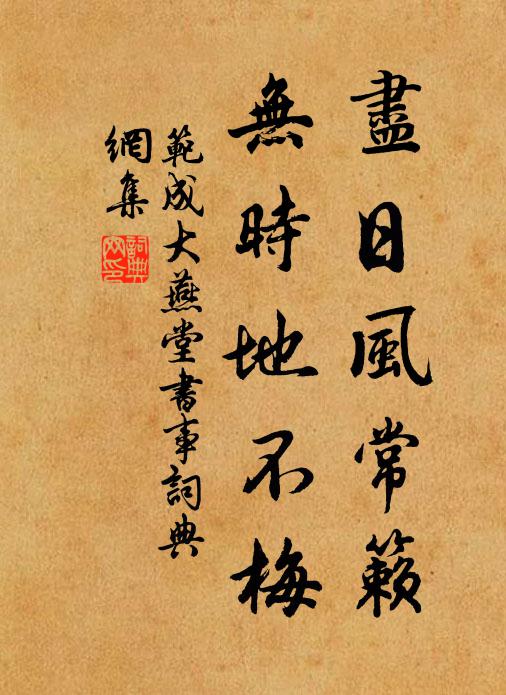 盡日風常籟
無時地不梅
範成大燕堂書事詞典
網集
詞典網印